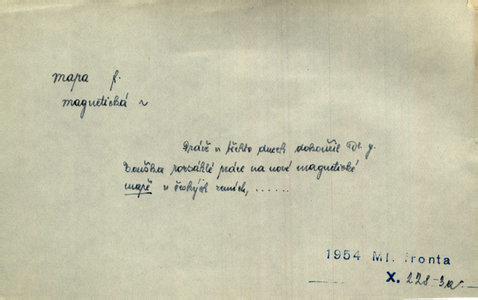 mapa f.
magnetická ~
Právě v těchto dnech dokončil Dr. J.
Bouška rozsáhlé práce na nové magnetické
mapě v českých zemích, ......
1954 Ml. fronta
X. 228-3a